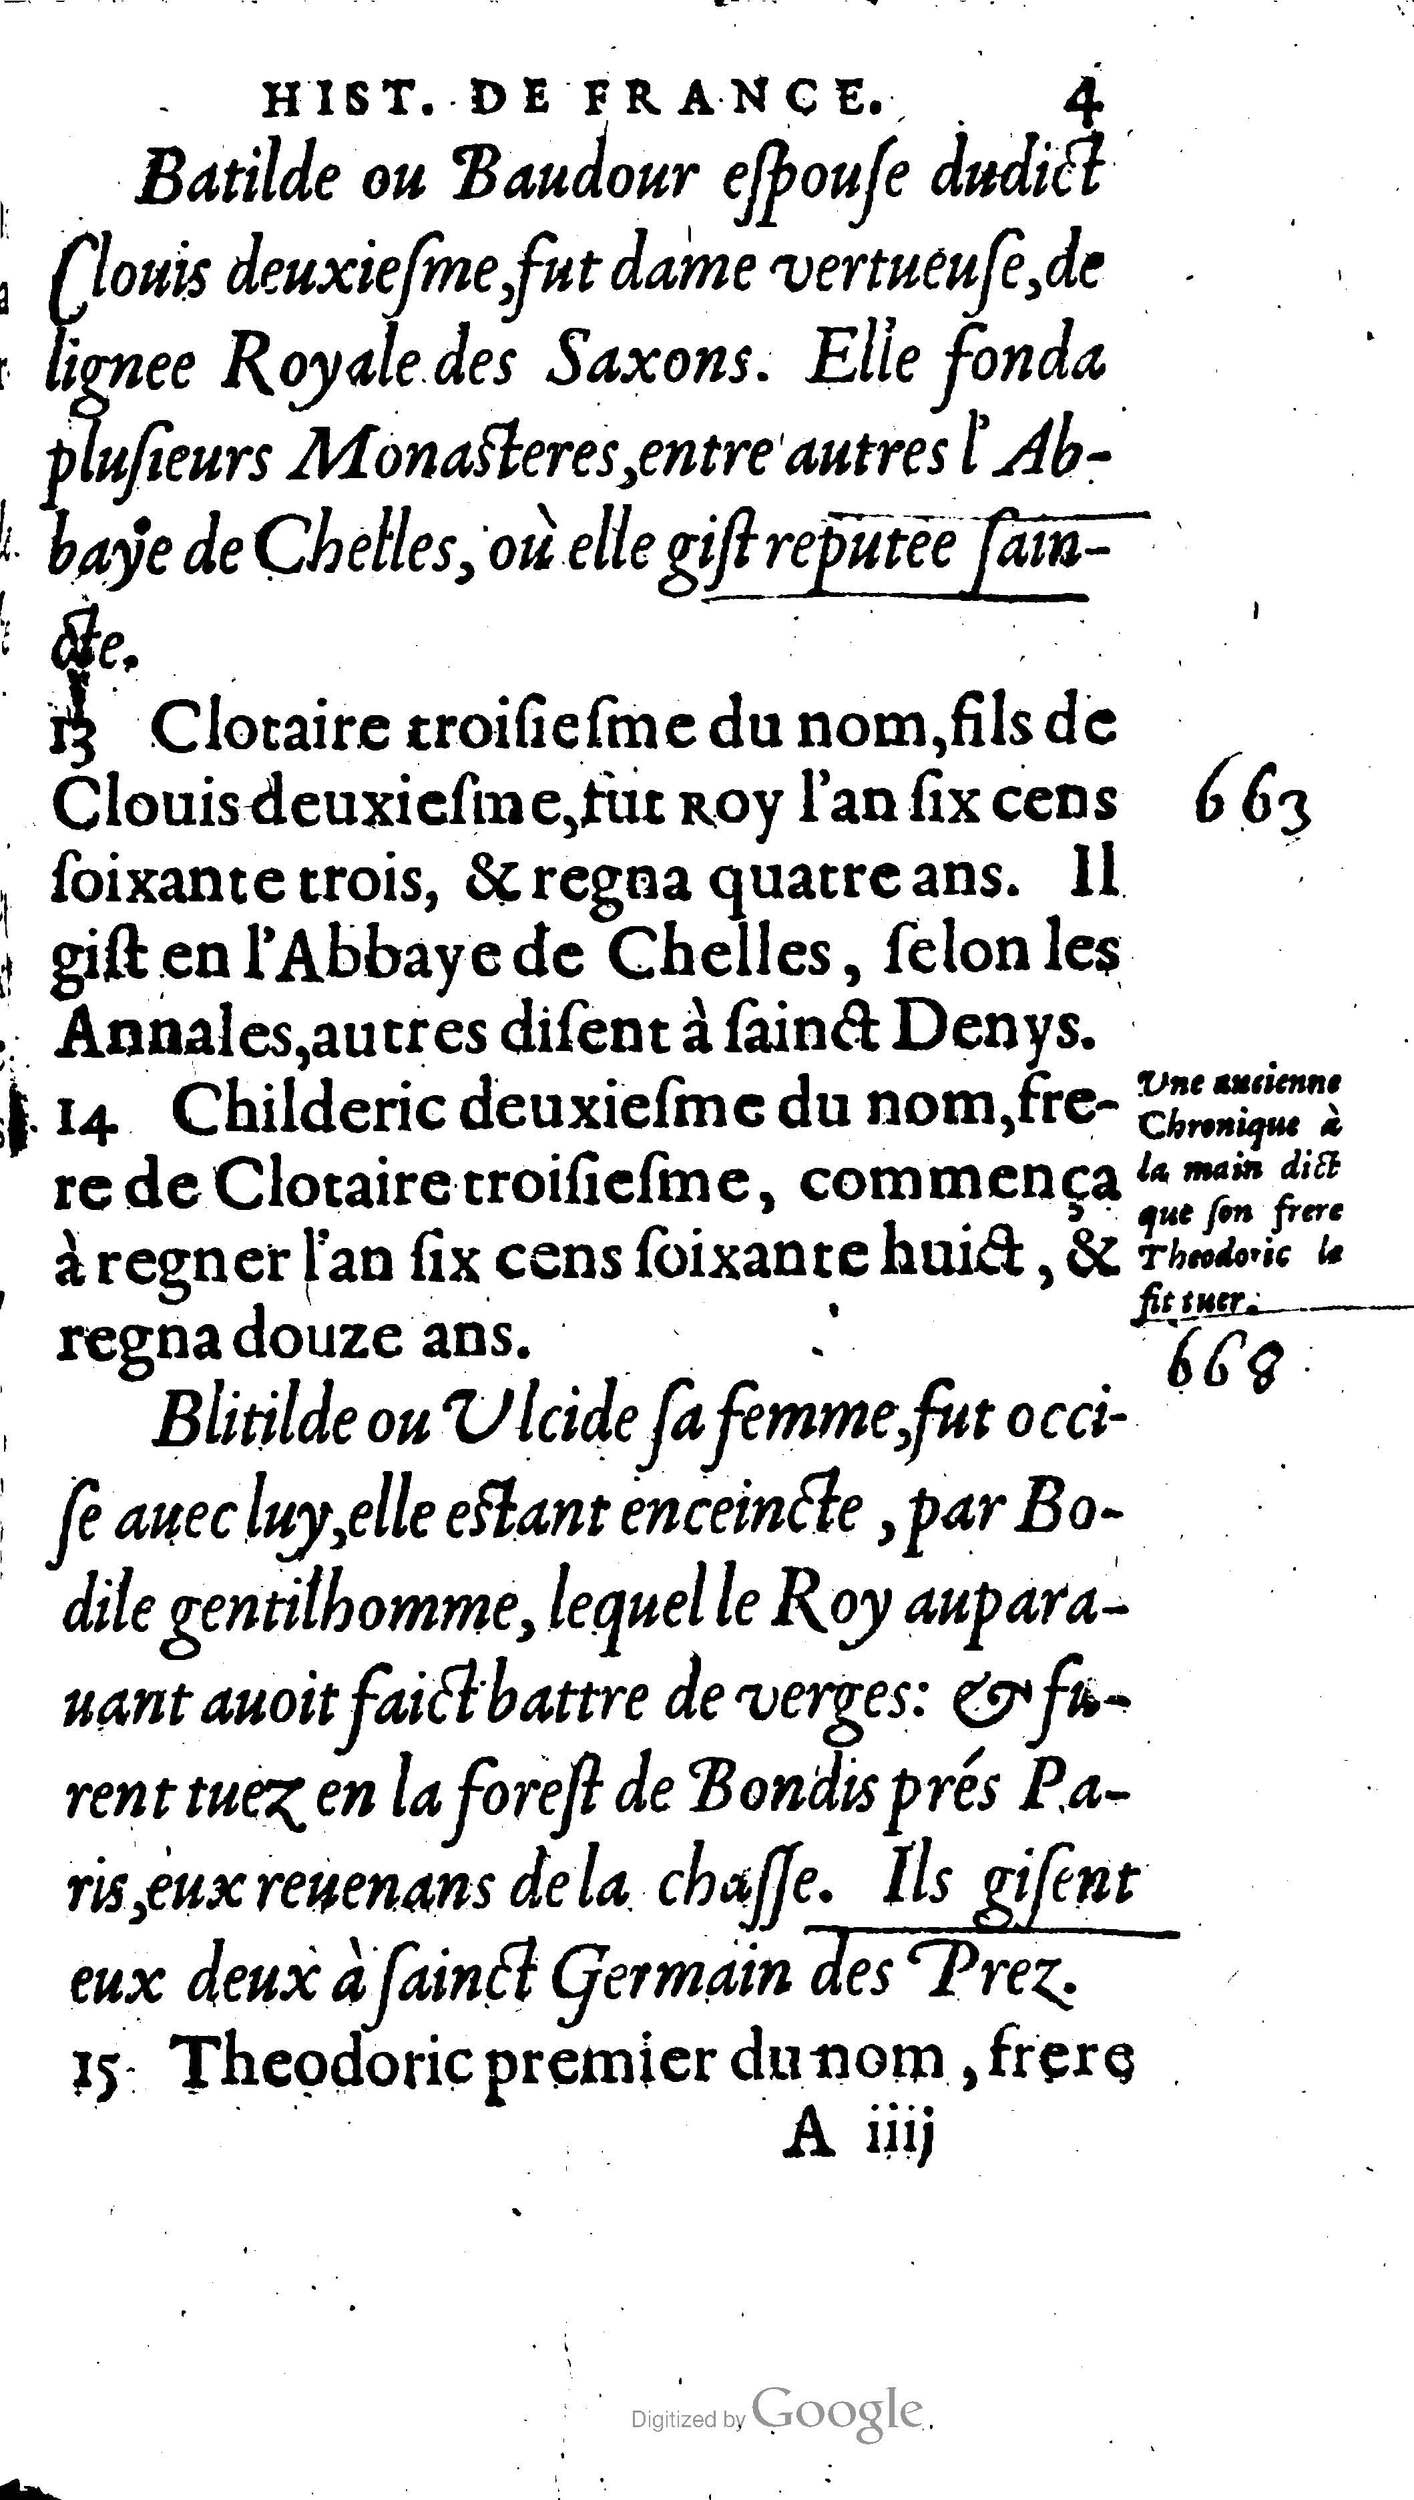 HIST. DE FRANCE. 4
Batilde ou Baudour eſpouſe dudict
Clouis deuxieſme, fut dame vertueuſe, de
lignee Royale des Saxons. Elle fonda
pluſieurs Monasteres, entre autres l'Ab-
baye de Chelles, où elle giſt reputee ſain-
cte.
13 Clotaire troiſieſme du nom, fils de
Clouis deuxieſme, fut Roy l'an ſix cens
663
ſoixante trois, & regna quatre ans. Il
giſt en l'Abbaye de Chelles, ſelon les
Annales, autres diſent à ſainct Denys.
14 Childeric deuxieſme du nom, fre-
re de Clotaire troiſieſme, commença
à regner l'an ſix cens ſoixante huict, &
regna douze ans.
Une ancienne
Chronique à
la main dict
que ſon frere
Theodoric le
fit tuer.
668
Blitilde ou Ulcide ſa femme, fut occi-
ſe auec luy, elle estant enceincte, par Bo-
dile gentilhomme, lequel le Roy aupara-
uant auoit faict battre de verges: & fu-
rent tuez en la foreſt de Bondis prés Pa-
ris, eux reuenans de la chaſſe. Ils giſent
eux deux à ſainct Germain des Prez.
15 Theodoric premier du nom, frere
A iiij
Digitized by Google